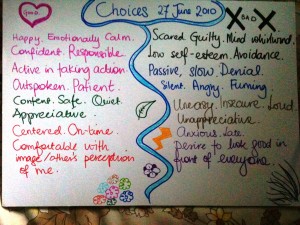 Good
Choices 27 June 2010
BAD
Happy. Emotionally Calm.
Confident. Responsible.
Active in taking action.
Outspoken. Patient.
Content. Safe. Quiet.
Appreciative.
Centered. On-time.
Comfortable with
image/others perception
of me.
Scared. Guilty. Mind whirlwind.
Low self-esteem. Avoidance.
Passive, slow. Denial.
Silent. Angry. Fuming
Uneasy. Insecure. Loud
Unappreciative.
Anxious. Late.
Desire to look good in
front of everyone.